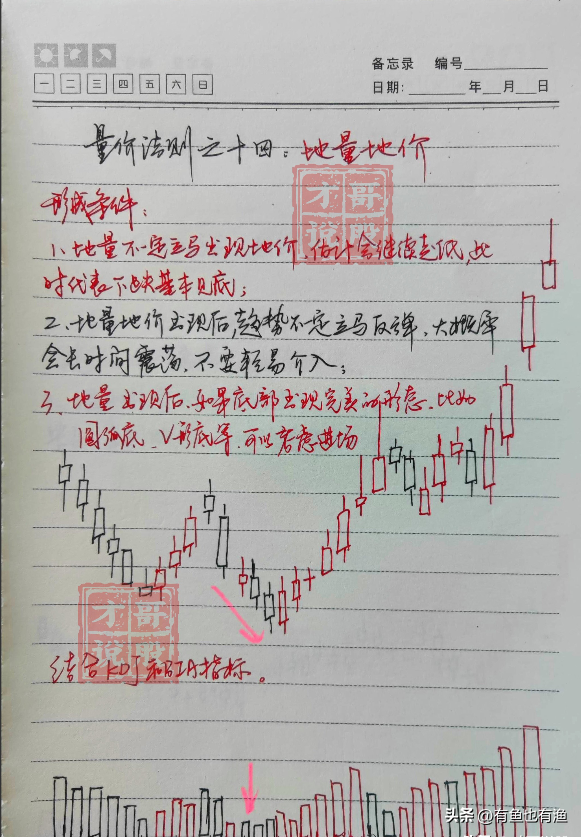 备忘录 编号
一 二 三 四 五 六 日
日期: 年 月 日
量价法则之十四:地量地价
才哥说股
形成条件:
1、地量不一定立马出现地价,估计会继续走低,此
时代表下跌基本见底;
2、地量地价出现后,趋势不一定立马反弹,大概率
会长时间震荡,不要轻易介入;
3、地量出现后,如果底部出现完美的形态,比如
圆弧底、V形底等,可以考虑进场
才哥说股
结合KDJ和指标。
头条 @有鱼也有渔